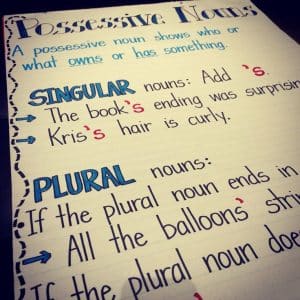 Possessive Nouns
A possessive noun shows who or
what owns or has something.
SINGULAR nouns: Add 's.
The book's ending was surprising
Kris's hair is curly.
PLURAL nouns:
If the plural noun ends in
All the balloons' stri
If the plural noun doe